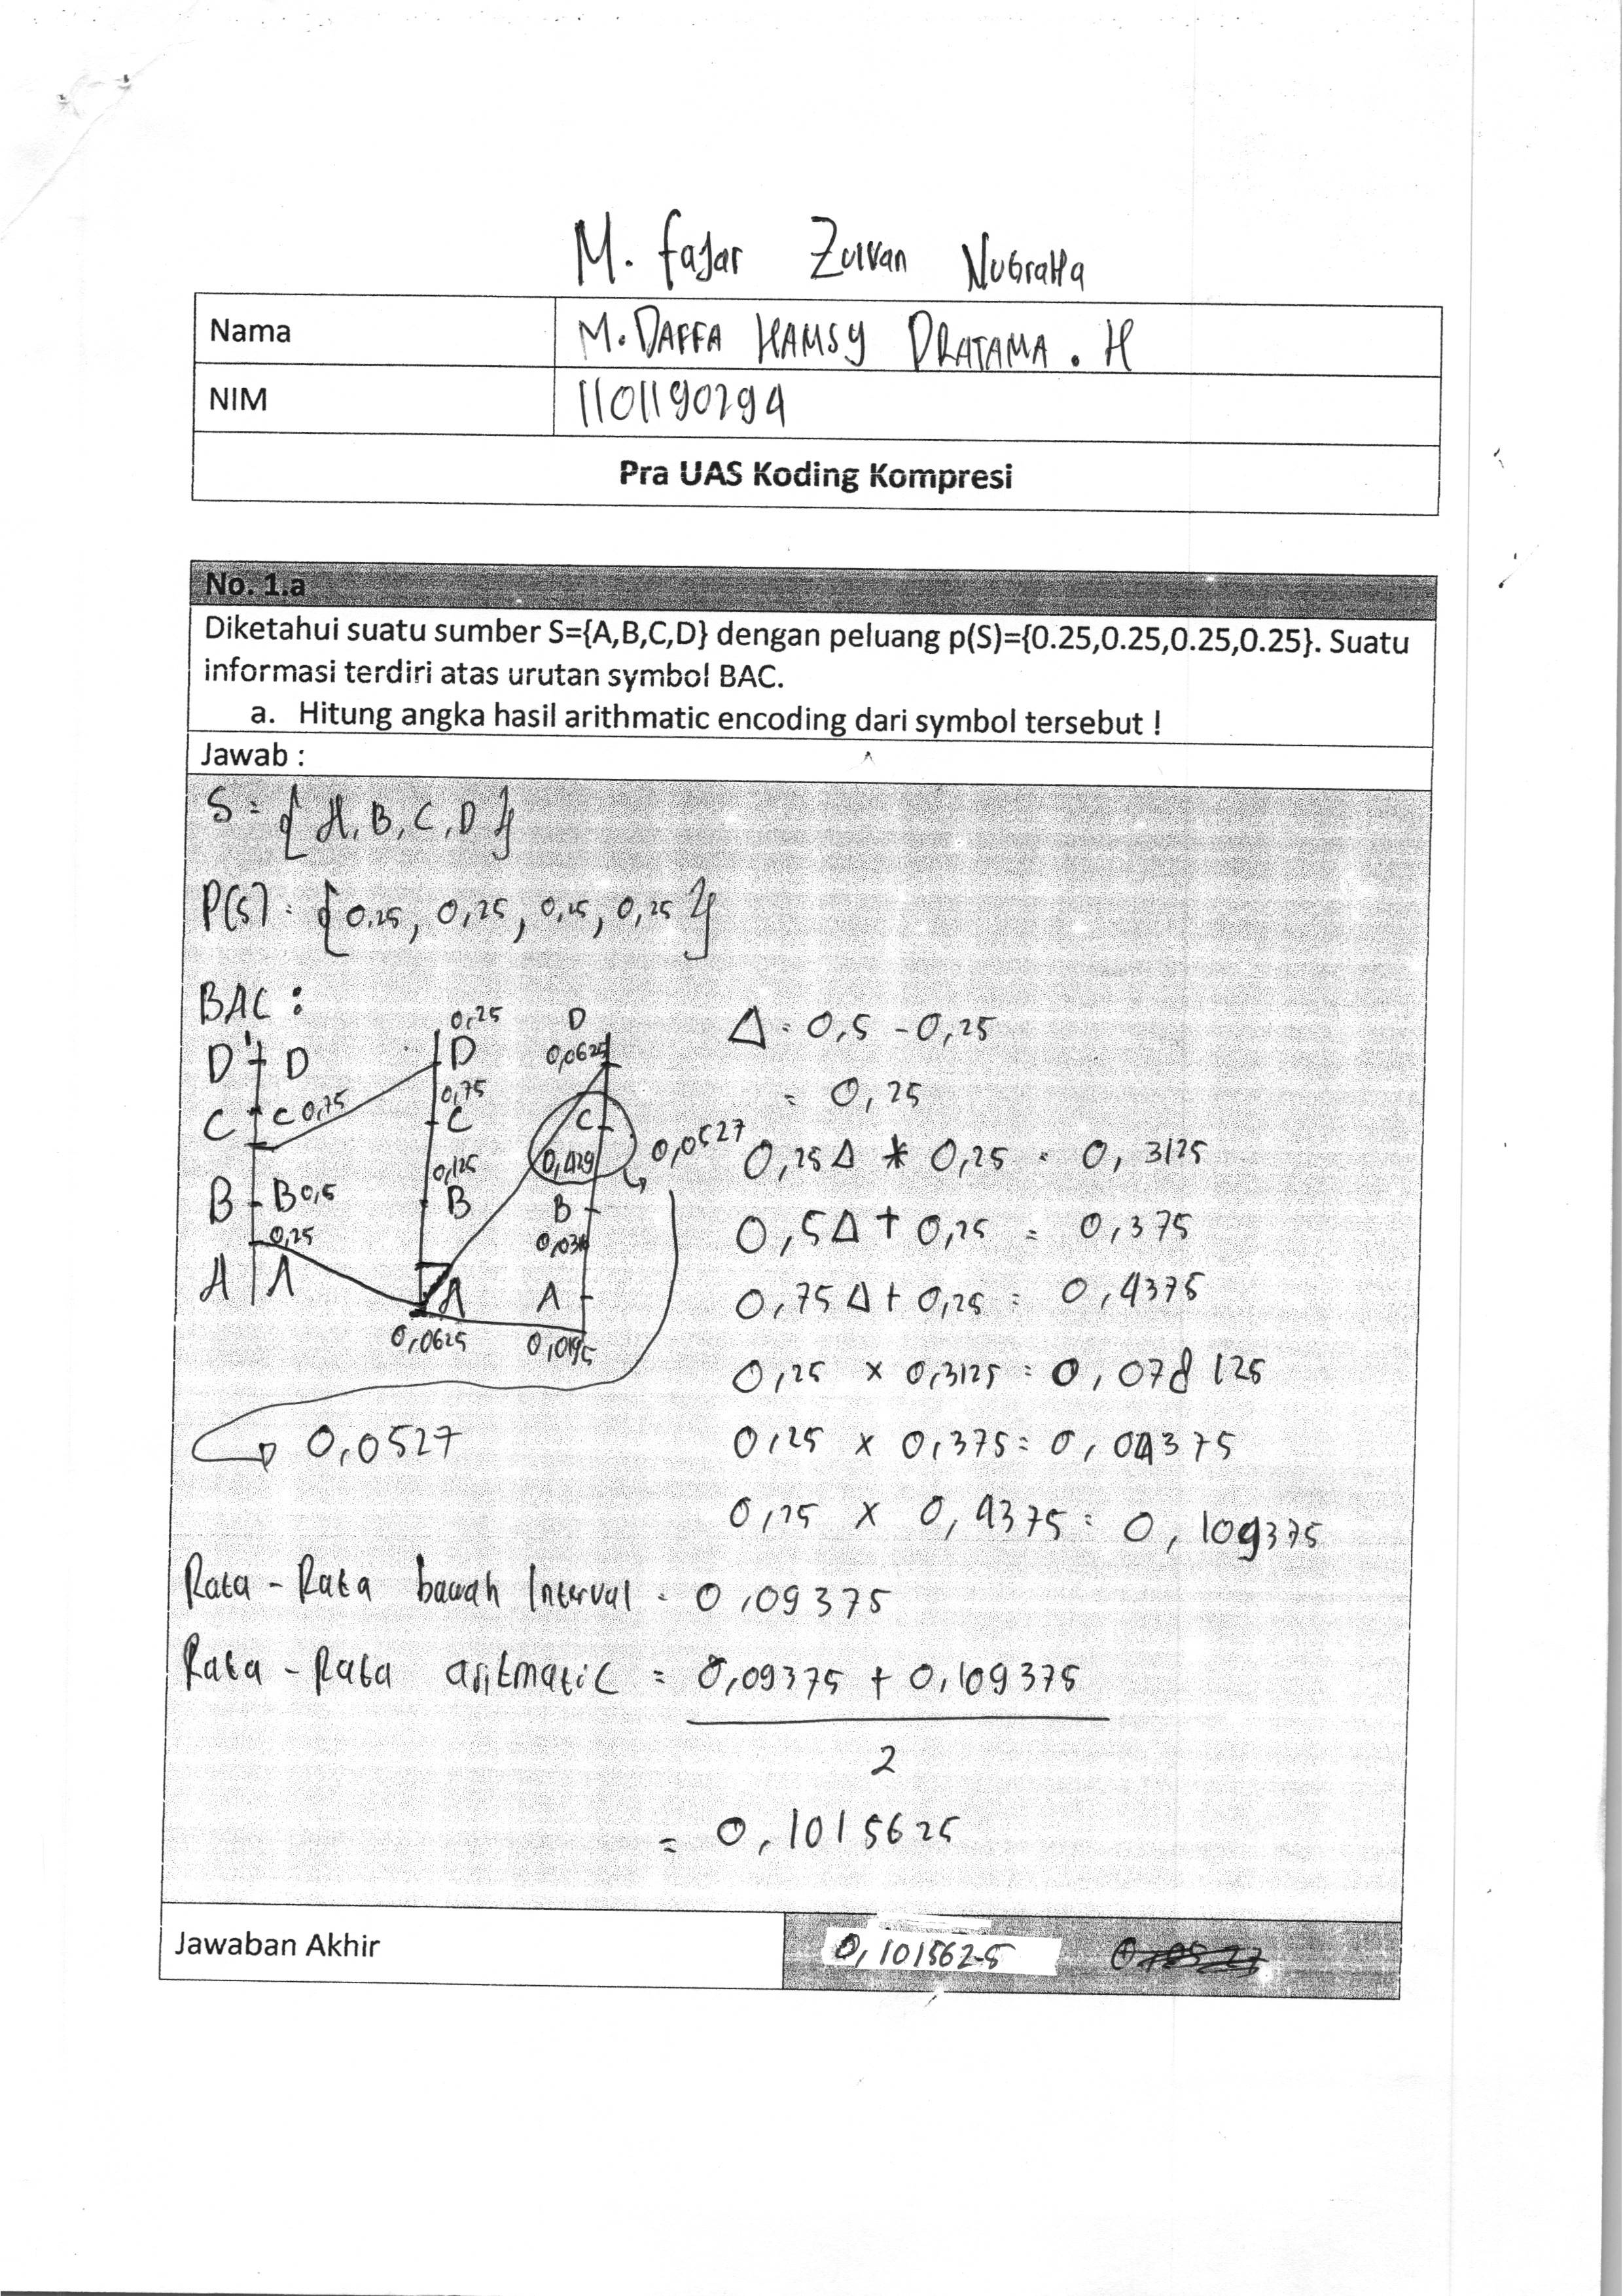 M. Fajar Zulvan Nugraha
Nama M. DAFFA HAMSY PRATAMA . H
NIM 1101190294
Pra UAS Koding Kompresi
No. 1.a
Diketahui suatu sumber S={A,B,C,D} dengan peluang p(S)={0.25,0.25,0.25,0.25}. Suatu
informasi terdiri atas urutan symbol BAC.
a. Hitung angka hasil arithmatic encoding dari symbol tersebut !
Jawab :
S = { A, B, C, D }
P(S) = { 0,25, 0,25, 0,25, 0,25 }
BAC :
D D
C C 0,75
B B 0,5
0,25
A A
0,25
D
0,75
C
0,125
B
A
0,0625
D
0,0625
C
B
A
0,0195
0,0527
0,0527
Δ = 0,5 - 0,25
= 0,25
0,25Δ * 0,25 = 0,3125
0,5Δ + 0,25 = 0,375
0,75Δ + 0,25 = 0,4375
0,25 x 0,3125 = 0,078125
0,25 x 0,375 = 0,09375
0,25 x 0,4375 = 0,109375
Rata - Rata bawah Interval = 0,09375
Rata - Rata aritmatic = 0,09375 + 0,109375
2
= 0,1015625
Jawaban Akhir 0,1015625